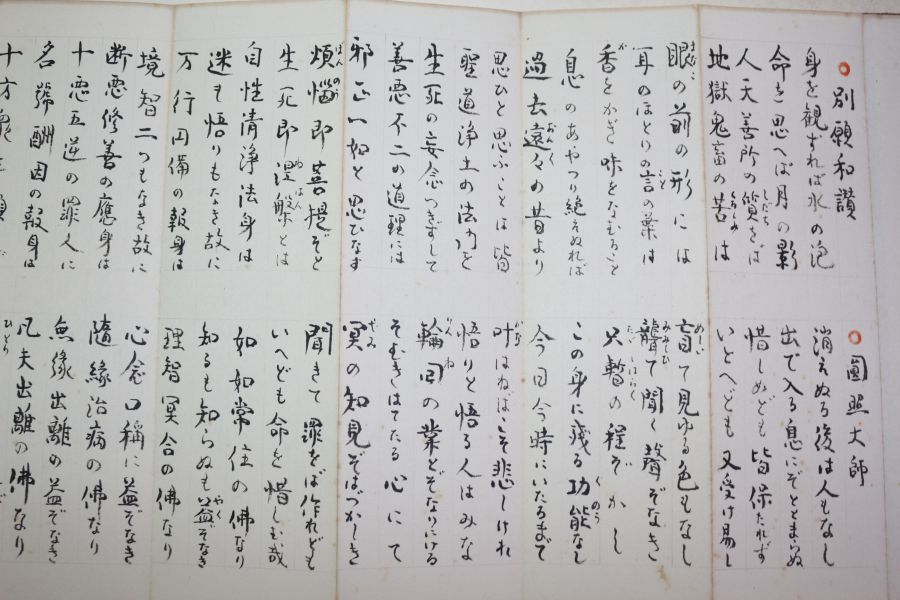 別願和讃　圓照大師
身を観ずれば水の泡　消えぬる後は人もなし
命を思へば月の影　出で入る息にぞとまらぬ
人天善所の質をば　惜しめども皆保たれず
地獄鬼畜の苦は　いとへども又受け易し
眼の前の形には　盲て見ゆる色もなし
耳のほとりの言の葉は　聾て聞く聲ぞなき
香をかぎ味をなむること　只暫の程ぞかし
息のあやつり絶えぬれば　この身に残る功能なし
過去遠々の昔より　今日今時にいたるまで
思ひと思ふことは皆　叶はねばこそ悲しけれ
聖道浄土の法門を　悟りと悟る人はみな
生死の妄念つきずして　輪回の業とぞなりにける
善悪不二の道理には　そむきはてたる心にて
邪正一如と思ひなす　冥の知見ぞはづかしき
煩惱即菩提ぞと　聞きて罪をば作れども
生死即涅槃とは　いへども命を惜しむ哉
自性清浄法身は　如如常住の佛なり
迷も悟りもなき故に　知るも知らぬも益ぞなき
万行円備の報身は　理智冥合の佛なり
境智二つもなき故に　心念口稱に益ぞなき
断悪修善の應身は　隨縁治病の佛なり
十悪五逆の罪人に　無縁出離の益ぞなき
名號酬因の報身は　凡夫出離の佛なり
十方衆生